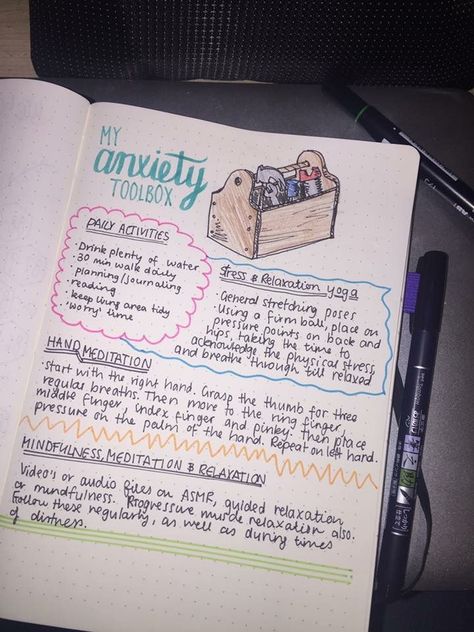 MY
anxiety
TOOLBOX
DAILY ACTIVITIES
· Drink plenty of water
· 30 min walk daily
· planning/journaling
· reading
· keep living area tidy
· 'worry' time
Stress & Relaxation yoga
· General stretching poses
· Using a firm ball, place on
pressure points on back and
hips, taking the time to
acknowledge the physical stress
and breathe through till relaxed
HAND MEDITATION
Start with the right hand. Grasp the thumb for three
regular breaths. Then move to the ring finger,
middle finger, index finger and pinky. then place
pressure on the palm of the hand. Repeat on left hand.
MINDFULNESS, MEDITATION & RELAXATION
Video's or audio files on ASMR, guided relaxation
or mindfulness. Progressive muscle relaxation also.
Follow these regularly, as well as during times
of distress.